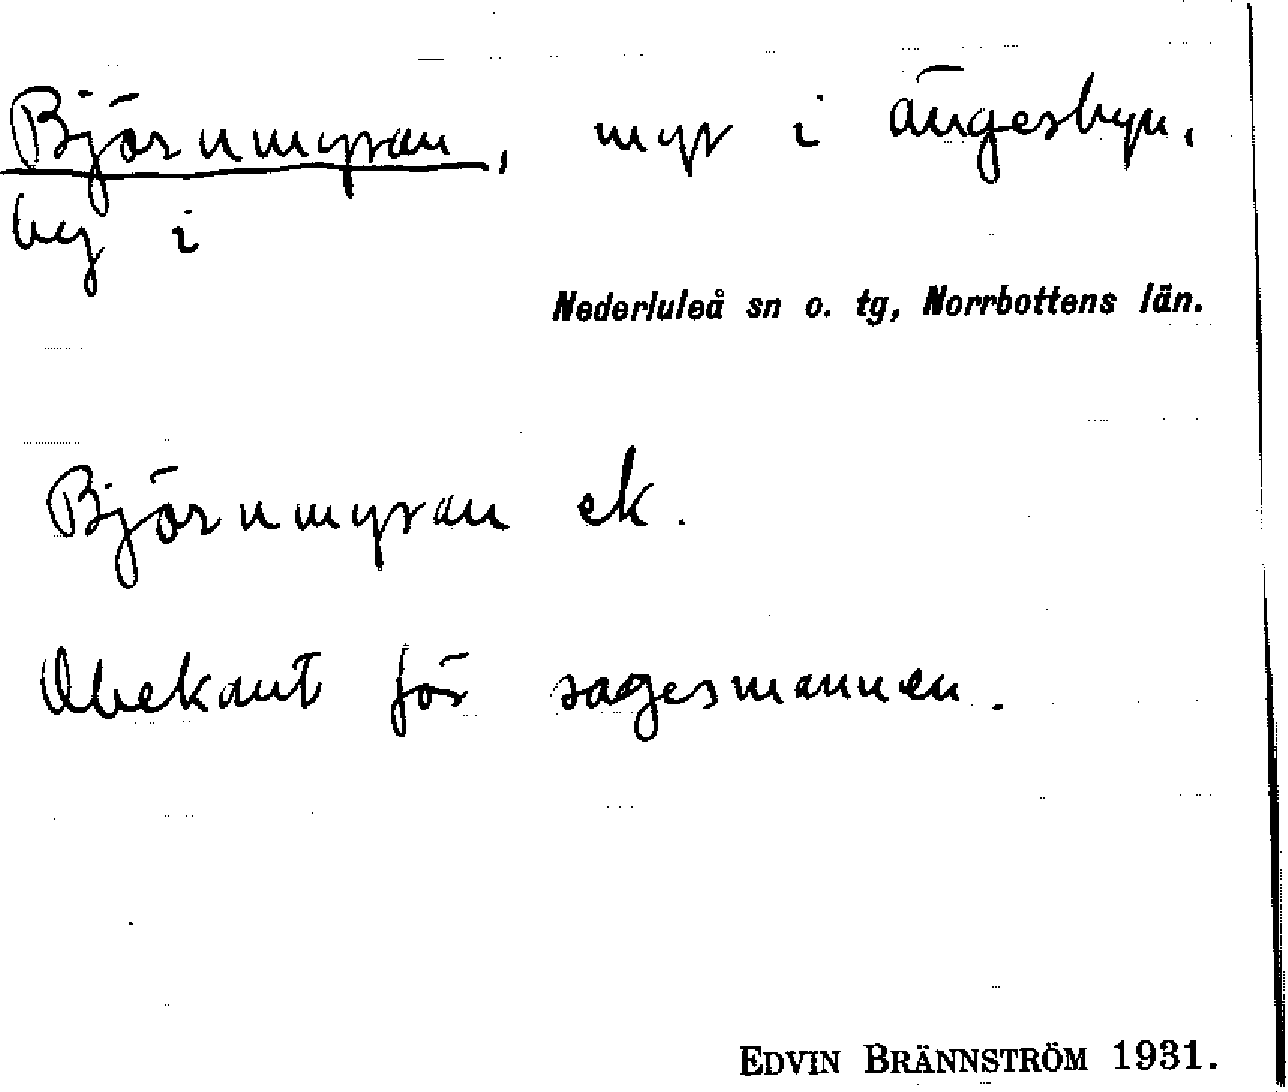 Björnmyran, myr i ängesbyn,
by i
Nederluleå sn o. tg, Norrbottens län.
Björnmyran ek.
Obekant för sagesmannen.
EDVIN BRÄNNSTRÖM 1931.